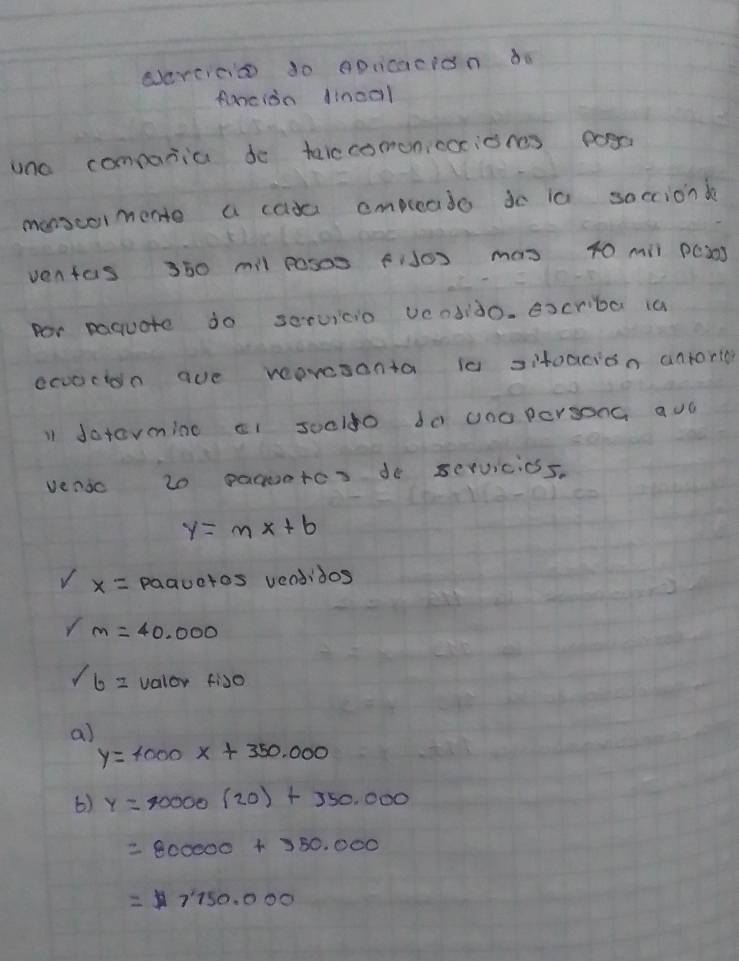 ejercicio de Aplicación de
función lineal
una compañia de telecomonicaciones paga
mensualmente a cada empleado de la sección de
ventas 350 mil pesos fijos mas 40 mil pesos
por paquete de servicio vendido. escriba la
ecuación que representa la situación anterior
y determine el sueldo de una persona que
vende 20 paquetes de servicios.
y = mx + b
✓ x = paquetes vendidos
✓ m = 40.000
✓ b = valor fijo
a)
y = 4000 x + 350.000
b) y = 40000 (20) + 350.000
= 800000 + 350.000
= $ 1'150.000